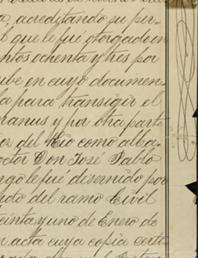 o, acreditando su per
l que le fué otorgado en
ntos ochenta y tres por
ube en cuyo documen
la para transigir el
manus y por otra parte
or del Rio como alba
octor Don José Pablo
ngo le fué discernido por
ndo del ramo Civil
einta y uno de Enero de
n acta cuya copia certi